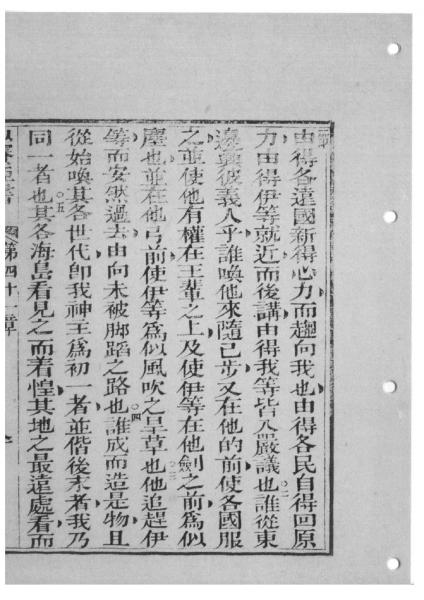 由得各遠國新得心力而趨向我也由得各民自得回原
力由得伊等就近而後講由得我等皆入嚴議也○二誰從東
邊興彼義人乎誰喚他來隨己步又在他的前使各國服
之並使他有權在王輩之上及使伊等在他劍之前爲似
塵也並在他弓前使伊等爲似風吹之呈草也○三他追趕伊
等而安然過去由向未被脚蹈之路也○四誰成而造是物且
從始喚其各世代卽我神王爲初一者並偕後末者我乃
同一者也○五其各海島看見之而着惶其地之最遠處看而
第四十一章